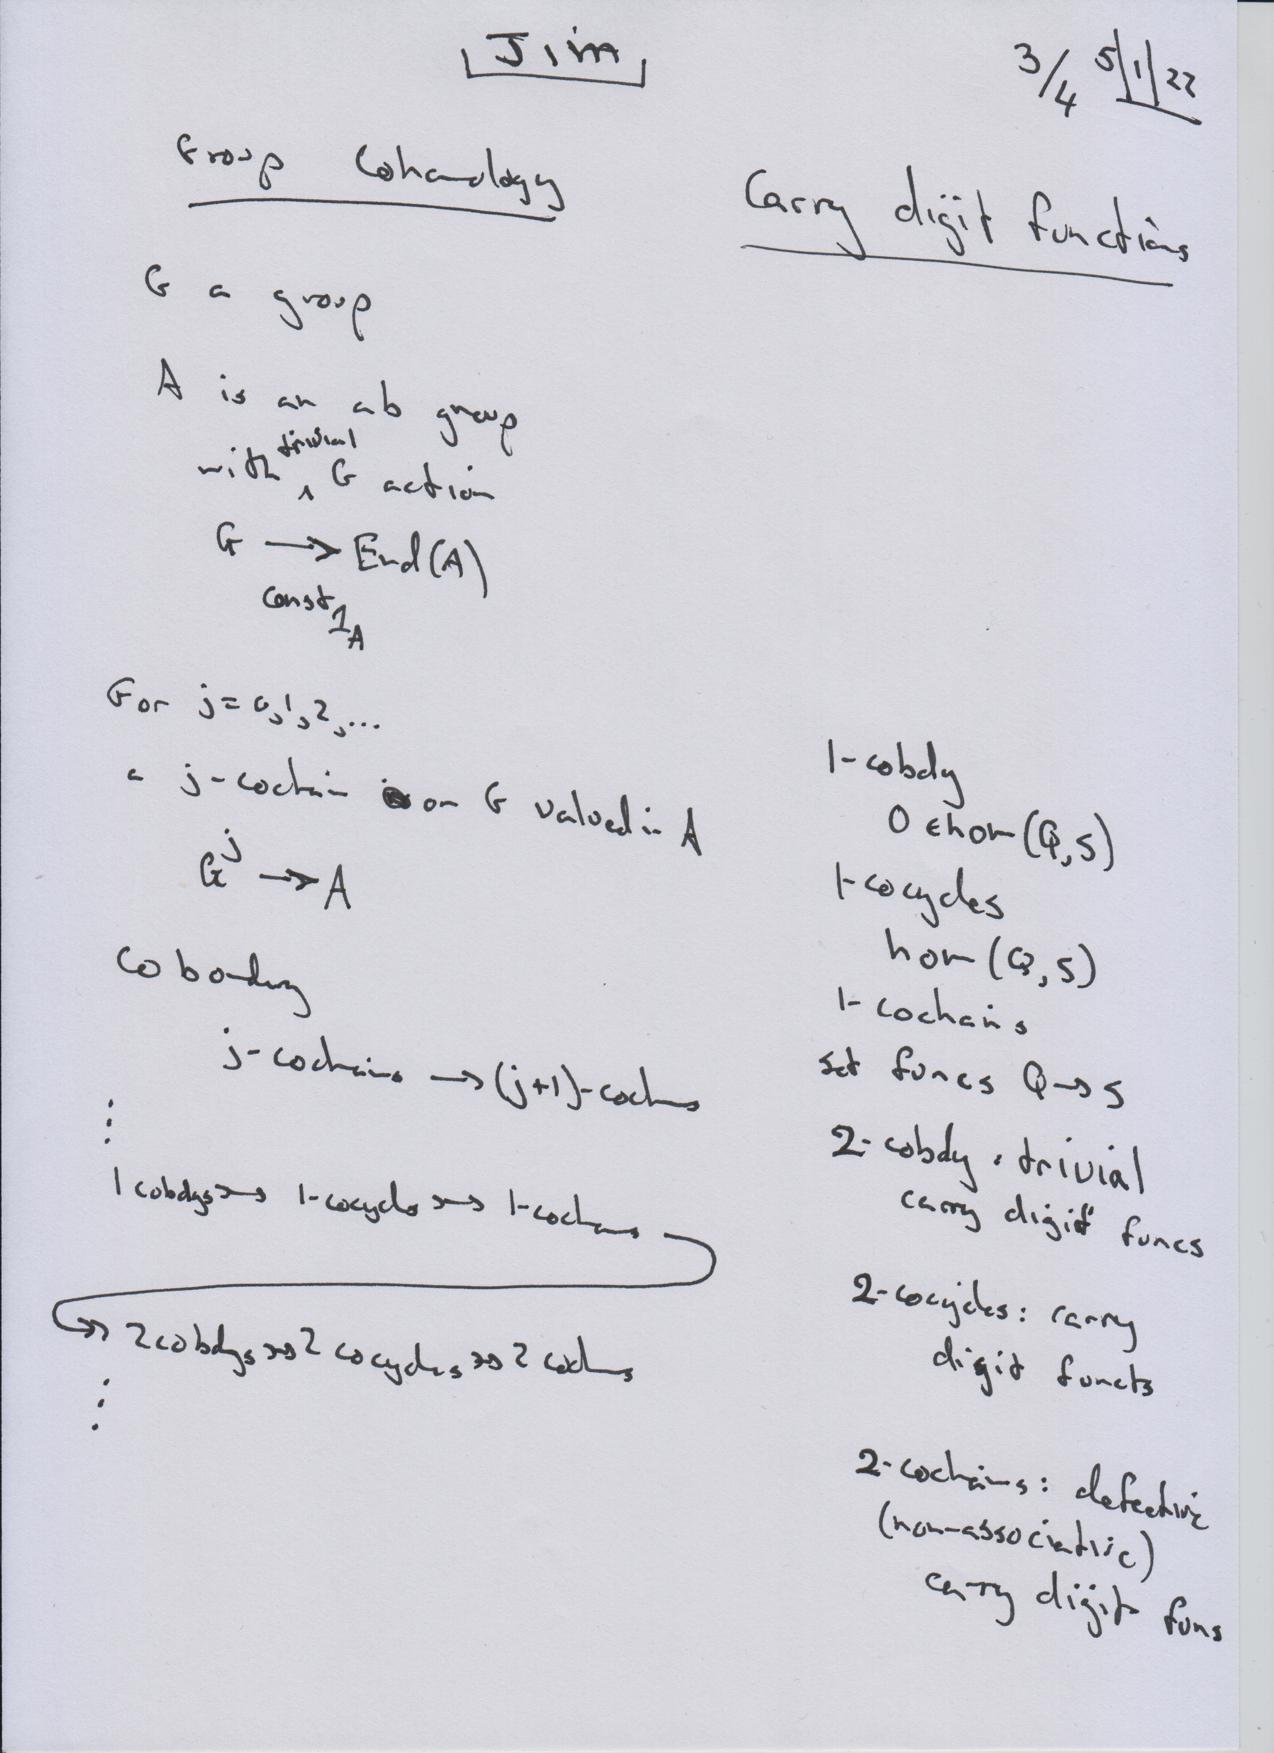 Jim
3/4 5/1/22
Group Cohomology
Carry digit functions
G a group
A is an ab group
with ∧ trivial G action
G → End(A)
const 1_A
For j = 0, 1, 2, ...
a j-cochain on G valued in A
G^j → A
Coboundary
j-cochains → (j+1)-cochains
⋮
1 cobdys ↣ 1-cocycles ↣ 1-cochains
↪ 2 cobdys ↣ 2 cocycles ↣ 2 cochains
⋮
1-cobdy
0 ∈ hom(Q, S)
1-cocycles
hom(Q, S)
1-cochains
set funcs Q → S
2-cobdy : trivial
carry digit funcs
2-cocycles: carry
digit functs
2-cochains: defective
(non-associative)
carry digit funs